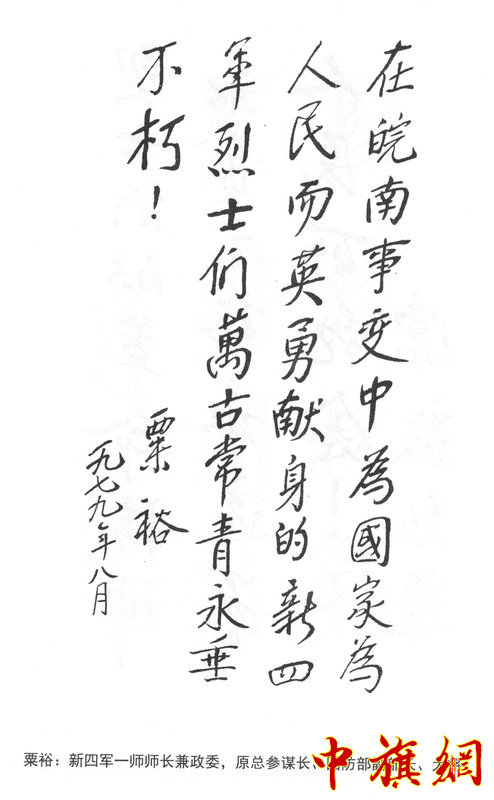 在皖南事变中為國家為
人民而英勇献身的新四
軍烈士们萬古常青永垂
不朽！
粟裕
一九七九年八月
粟裕：新四军一师师长兼政委，原总参谋长、国防部副部长、大将
中旗網